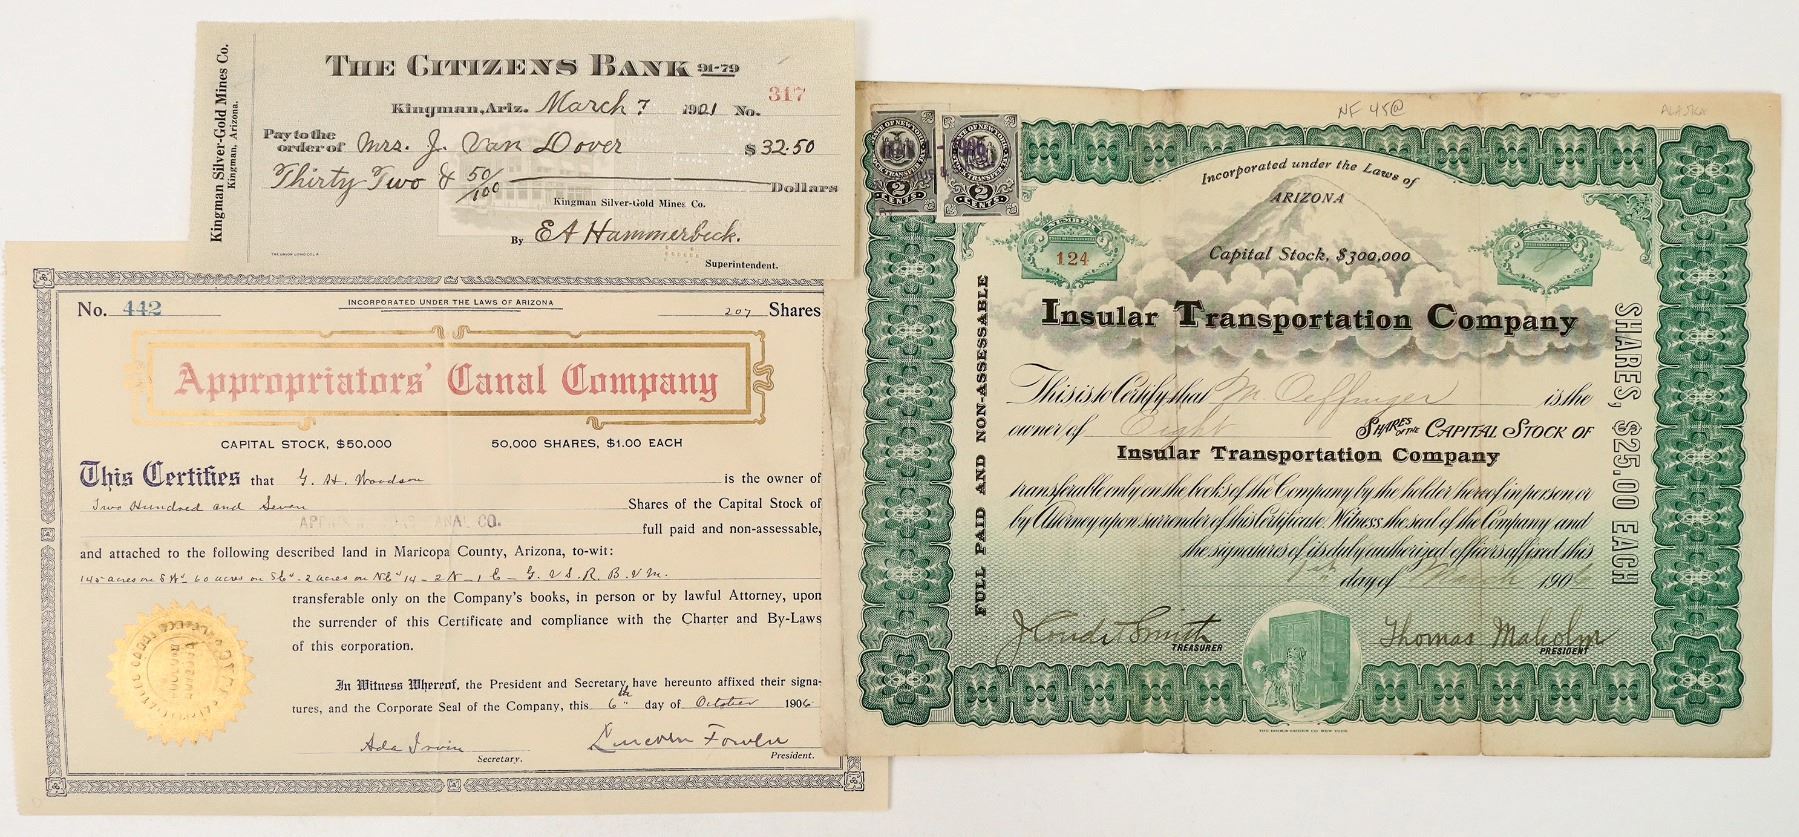 Kingman Silver-Gold Mines Co.
Kingman, Arizona.
THE CITIZENS BANK 91-79
Kingman, Ariz. March 7 1921 No. 317
Pay to the
order of Mrs. J. Van Dover $32.50
Thirty Two & 50/100 Dollars
Kingman Silver-Gold Mines Co.
By E A Hammerbeck.
Superintendent.
No. 442
INCORPORATED UNDER THE LAWS OF ARIZONA
207 Shares
Appropriators' Canal Company
CAPITAL STOCK, $50,000 50,000 SHARES, $1.00 EACH
This Certifies that G. H. Woodson is the owner of
Two Hundred and Seven Shares of the Capital Stock of
CANAL CO. full paid and non-assessable,
and attached to the following described land in Maricopa County, Arizona, to-wit:
145 acres on SW 60 acres on SE - 2 acres on NE 14 - 2 N - 1 E - G. & S. R. B. & M.
transferable only on the Company's books, in person or by lawful Attorney, upon
the surrender of this Certificate and compliance with the Charter and By-Laws
of this corporation.
In Witness Whereof, the President and Secretary have hereunto affixed their signa-
tures, and the Corporate Seal of the Company, this 6th day of October 1906
Ada Irvin
Secretary.
Lincoln Fowler
President.
NF 45@
ALASKA
2 CENTS
2 CENTS
Incorporated under the Laws of
ARIZONA
NUMBER
124
Capital Stock, $300,000
SHARES
8
Insular Transportation Company
FULL PAID AND NON-ASSESSABLE
SHARES, $25.00 EACH
This is to Certify that M. Oeffinger is the
owner of Eight SHARES OF THE CAPITAL STOCK OF
Insular Transportation Company
transferable only on the books of the Company by the holder hereof in person or
by Attorney upon surrender of this Certificate. Witness the seal of the Company and
the signatures of its duly authorized officers affixed this
day of March 1906
Smith
TREASURER
Thomas Malcolm
PRESIDENT